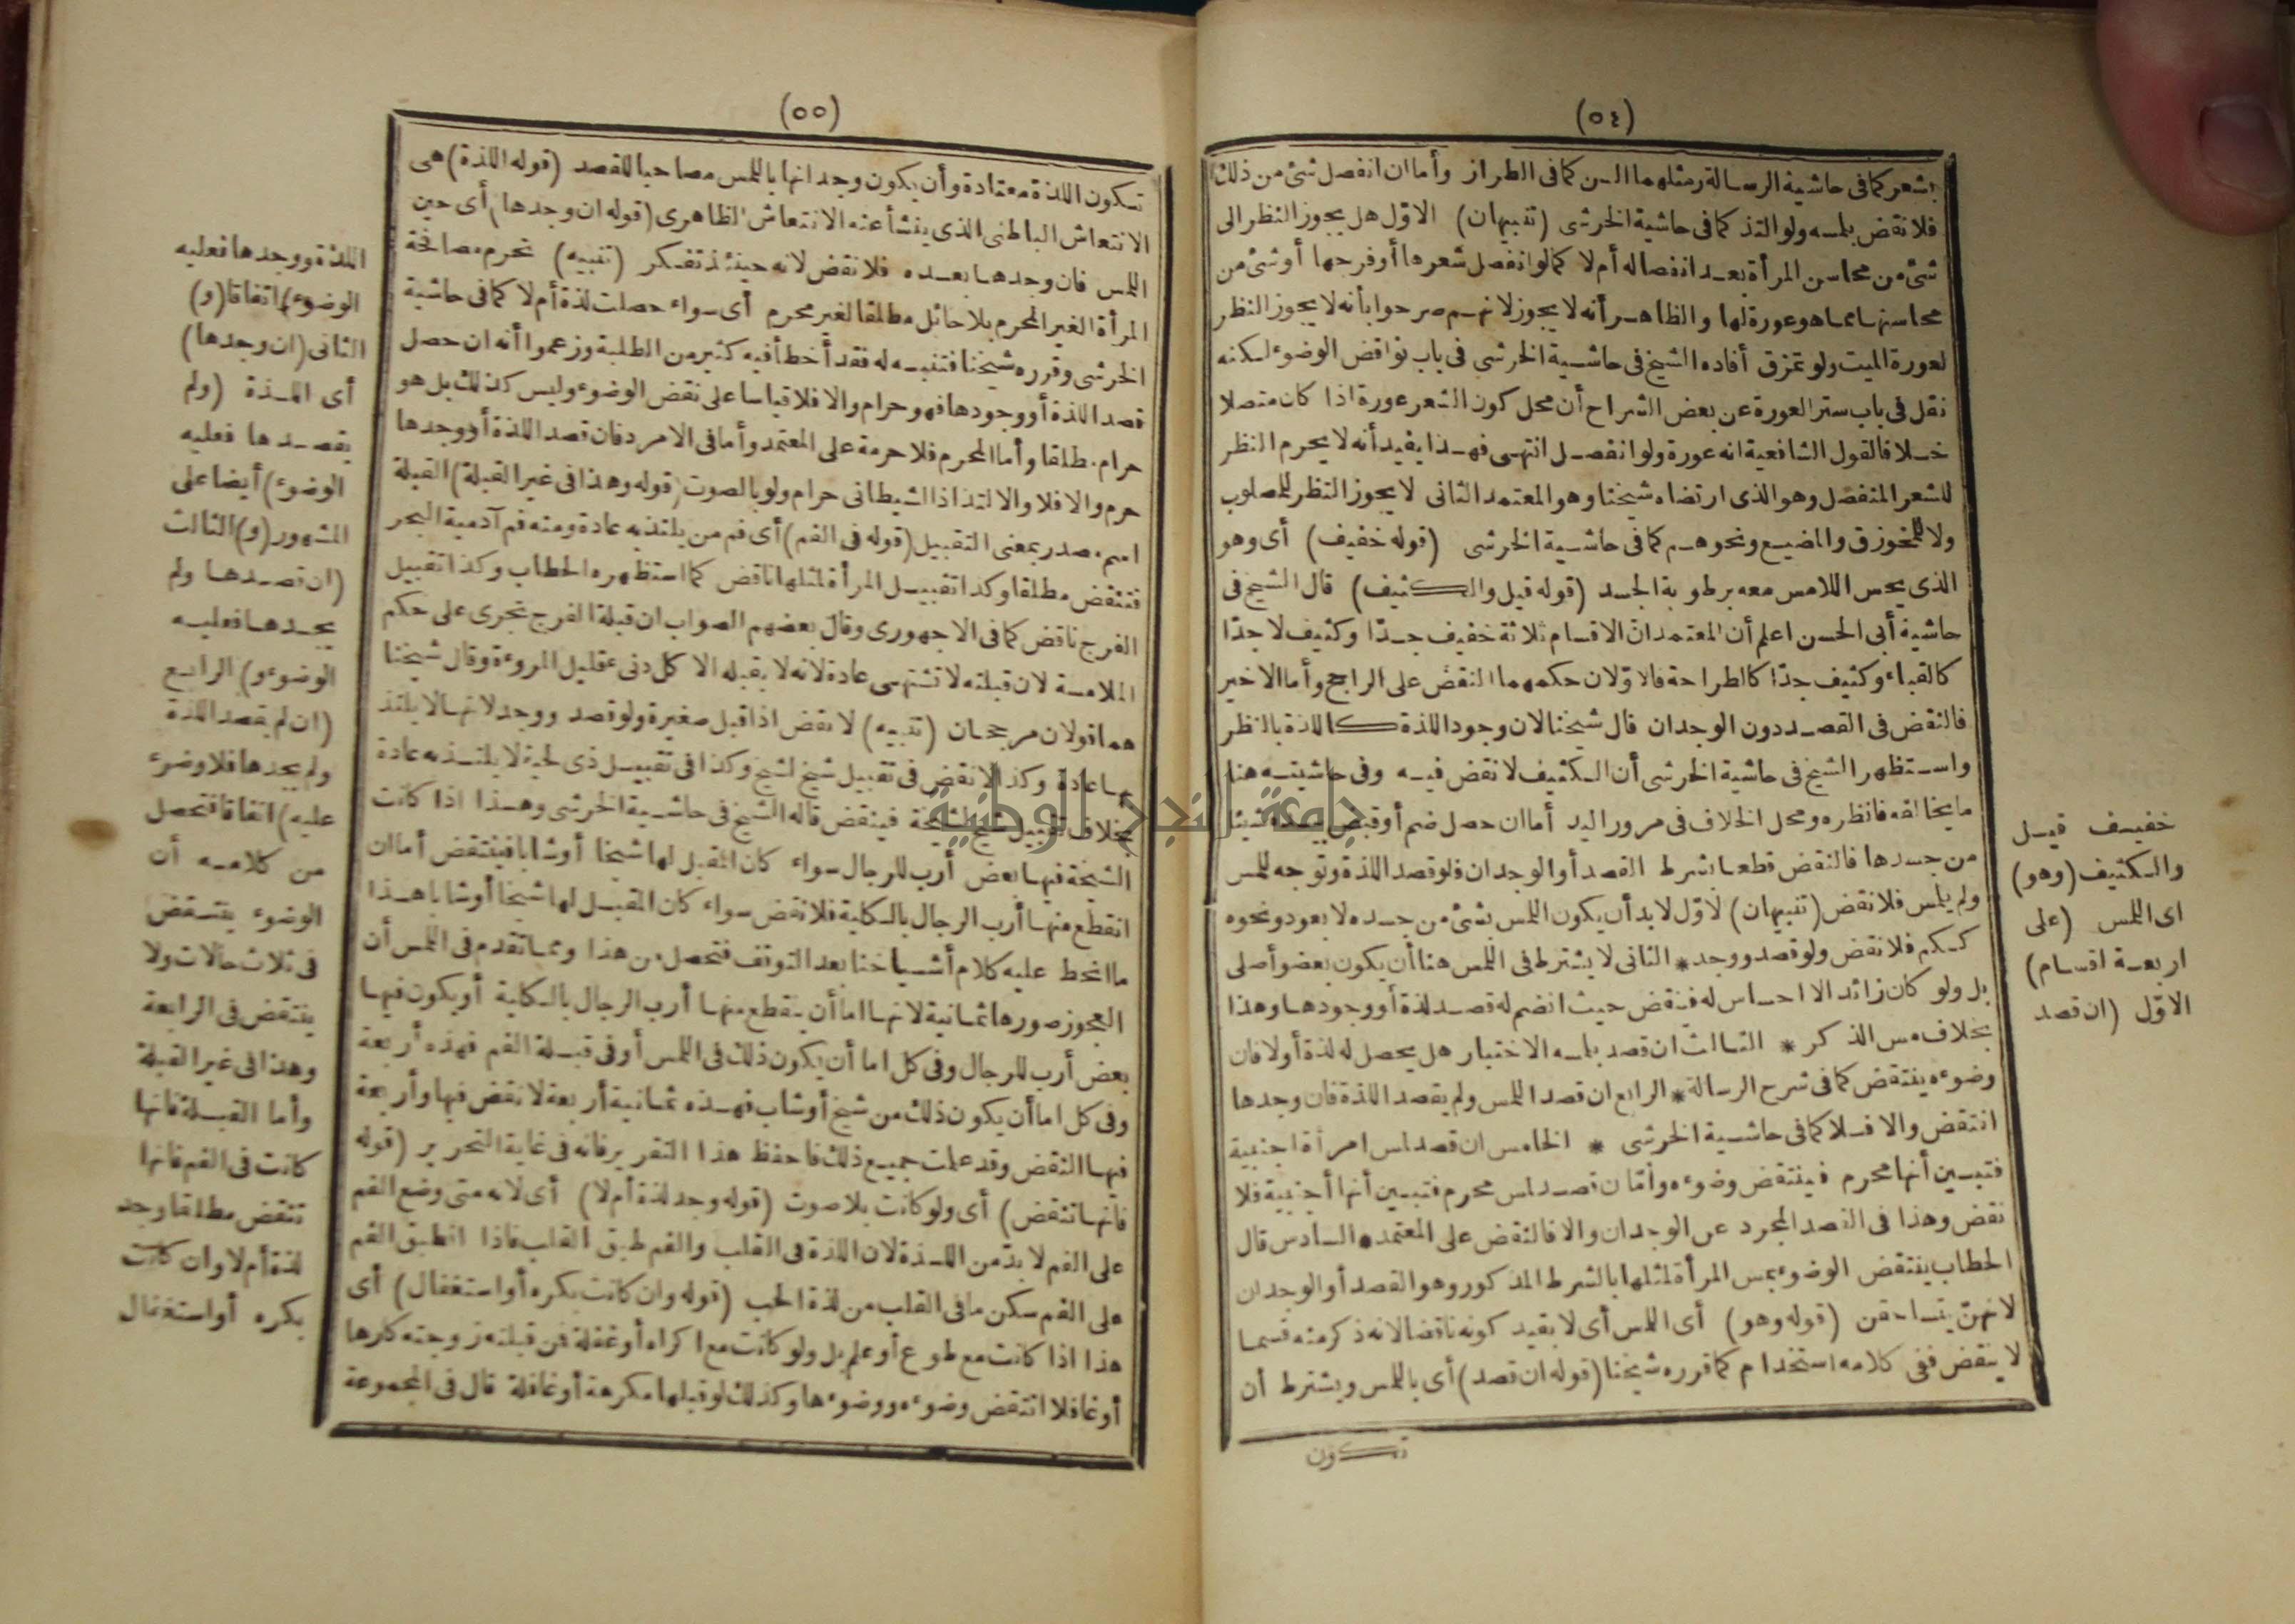 (٥٤)
بشعر كما فى حاشية الرسالة ومثلهما السن كما فى الطراز وأما ان انفصل شئ من ذلك
فلا نقض بلمسه ولو التذ كما فى حاشية الخرشى (تنبيهان) الاوّل هل يجوز النظر الى
شئ من محاسن المرأة بعد انفصاله أم لا كما لو انفصل شعرها أو فرجها أو شئ من
محاسنها مما هو عورة لها والظاهر أنه لا يجوز لانهم صرحوا بأنه لا يجوز النظر
لعورة الميت ولو تمزق أفاده الشيخ فى حاشية الخرشى فى باب نواقض الوضوء لكنه
نقل فى باب ستر العورة عن بعض الشراح أن محل كون الشعر عورة اذا كان متصلا
خلافا لقول الشافعية انه عورة ولو انفصل انتهى فهذا يفيد أنه لا يحرم النظر
للشعر المنفصل وهو الذى ارتضاه شيخنا وهو المعتمد الثانى لا يجوز النظر للمصلوب
ولا للمخوزق والمضيع ونحوهم كما فى حاشية الخرشى (قوله خفيف) أى وهو
الذى يحس اللامس معه برطوبة الجسد (قوله قيل والكثيف) قال الشيخ فى
حاشية أبى الحسن اعلم أن المعتمد انّ الاقسام ثلاثة خفيف جدّا وكثيف لا جدّا
كالقباء وكثيف جدّا كالطراحة فالاوّلان حكمهما النقض على الراجح وأما الاخير
فالنقض فى القصد دون الوجدان قال شيخنا لان وجود اللذة كاللذة بالنظر
واستظهر الشيخ فى حاشية الخرشى أن الكثيف لا نقض فيه وفى حاشيته هنا
ما يخالفه فانظره ومحل الخلاف فى مرور اليد أما ان حصل ضم أو قبض بيده شيئا
من جسدها فالنقض قطعا بشرط القصد أو الوجدان فلو قصد اللذة وتوجه للمس
ولم يلمس فلا نقض (تنبيهان) الاوّل لا بد أن يكون اللمس بشئ من جسده لا بعود ونحوه
ككم فلا نقض ولو قصد ووجد * الثانى لا يشترط فى اللمس هنا أن يكون بعضو أصلى
بل ولو كان زائد الا احساس له فينقض حيث انضم له قصد لذة أو وجودها وهذا
بخلاف مس الذكر * الثالث ان قصد بلمسه الاختبار هل يحصل له لذة أو لا فان
وضوءه ينتقض كما فى شرح الرسالة * الرابع ان قصد اللمس ولم يقصد اللذة فان وجدها
انتقض والا فلا كما فى حاشية الخرشى * الخامس ان قصد لمس امرأة اجنبية
فتبين أنها محرم فينتقض وضوءه وأمّا ان قصد لمس محرم فتبين أنها أجنبية فلا
نقض وهذا فى القصد المجرد عن الوجدان والا فالنقض على المعتمد * السادس قال
الحطاب ينتقض الوضوء بمس المرأة لمثلها بالشرط المذكور وهو القصد أو الوجدان
لانهنّ يتساحقن (قوله وهو) أى اللمس أى لا بقيد كونه ناقضا لانه ذكر منه قسما
لا ينقض ففى كلامه استخدام كما قرره شيخنا (قوله ان قصد) أى باللمس ويشترط أن
تكون
خفيف قيل
والكثيف (وهو)
اى اللمس (على
اربعة اقسام)
الاوّل (ان قصد
(٥٥)
تكون اللذة معتادة وأن يكون وجدانها باللمس مصاحبا للقصد (قوله اللذة) هى
الانتعاش الباطنى الذى ينشأ عنه الانتعاش الظاهرى (قوله ان وجدها) أى حين
اللمس فان وجدها بعده فلا نقض لانه حينئذ تفكر (تنبيه) تحرم مصافحة
المرأة الغير المحرم بلا حائل مطلقا لغير محرم أى سواء حصلت لذة أم لا كما فى حاشية
الخرشى وقرره شيخنا فتنبه له فقد أخطأ فيه كثير من الطلبة وزعموا أنه ان حصل
قصد اللذة أو وجودها فهو حرام والا فلا قياسا على نقض الوضوء وليس كذلك بل هو
حرام مطلقا وأما المحرم فلا حرمة على المعتمد وأما فى الامرد فان قصد اللذة أو وجدها
حرم والا فلا والالتذاذ الشيطانى حرام ولو بالصوت (قوله وهذا فى غير القبلة) القبلة
اسم مصدر بمعنى التقبيل (قوله فى الفم) أى فم من يلتذ به عادة ومنه فم آدمية البحر
فتنقض مطلقا وكذا تقبيل المرأة لمثلها ناقض كما استظهره الحطاب وكذا تقبيل
الفرج ناقض كما فى الاجهورى وقال بعضهم الصواب ان قبلة الفرج تجرى على حكم
الملامسة لان قبلته لا تشتهى عادة لانه لا يقبله الا كل دنى ء قليل المروءة وقال شيخنا
هما قولان مرجحان (تنبيه) لا نقض اذا قبل صغيرة ولو قصد ووجد لانها لا يلتذ
بها عادة وكذا لا نقض فى تقبيل شيخ لشيخ وكذا فى تقبيل ذى لحية لا يلتذ به عادة
بخلاف تقبيل شيخ لشيخة فينقض قاله الشيخ فى حاشية الخرشى وهذا اذا كانت
الشيخة فيها بعض أرب للرجال سواء كان المقبل لها شيخا أو شابا فينتقض أما ان
انقطع منها أرب الرجال بالكلية فلا نقض سواء كان المقبل لها شيخا أو شابا هذا
ما انحط عليه كلام أشياخنا بعد التوقف فتحصل من هذا ومما تقدم فى اللمس أن
العجوز صورها ثمانية لانها اما أن ينقطع منها أرب الرجال بالكلية أو يكون فيها
بعض أرب للرجال وفى كل اما أن يكون ذلك فى اللمس أو فى قبلة الفم فهذه أربعة
وفى كل اما أن يكون ذلك من شيخ أو شاب فهذه ثمانية أربعة لا نقض فيها وأربعة
فيها النقض وقد علمت جميع ذلك فاحفظ هذا التقرير فانه فى غاية التحرير (قوله
فانها تنقض) أى ولو كانت بلا صوت (قوله وجد لذة أم لا) أى لانه متى وضع الفم
على الفم لا بدّ من اللذة لان اللذة فى القلب والفم طبق القلب فاذا انطبق الفم
على الفم سكن ما فى القلب من لذة الحب (قوله وان كانت بكره أو استغفال) أى
هذا اذا كانت مع طوع أو علم بل ولو كانت مع اكراه أو غفلة فمن قبلته زوجته كارها
أو غافلا انتقض وضوءه ووضوءها وكذلك لو قبلها مكرهة أو غافلة قال فى المجموعة
اللذة ووجدها فعليه
الوضوء) اتفاقا (و)
الثانى (ان وجدها)
أى اللذة (ولم
يقصدها فعليه
الوضوء) أيضا على
المشهور (و) الثالث
(ان قصدها ولم
يجدها فعليه
الوضوء و) الرابع
(ان لم يقصد اللذة
ولم يجدها فلا وضوء
عليه) اتفاقا فتحصل
من كلامه أن
الوضوء ينتقض
فى ثلاث حالات ولا
ينتقض فى الرابعة
وهذا فى غير القبلة
وأما القبلة فانها
كانت فى الفم فانها
تنقض مطلقا وجد
لذة أم لا وان كانت
بكره أو استغفال
جامعة النجاح الوطنية